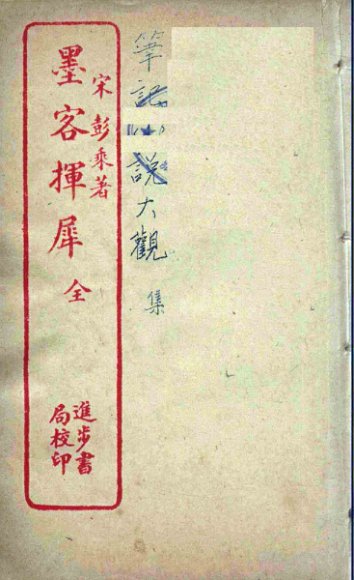 宋彭乘著
墨客揮犀 全
進步書
局校印
筆記小說大觀 集